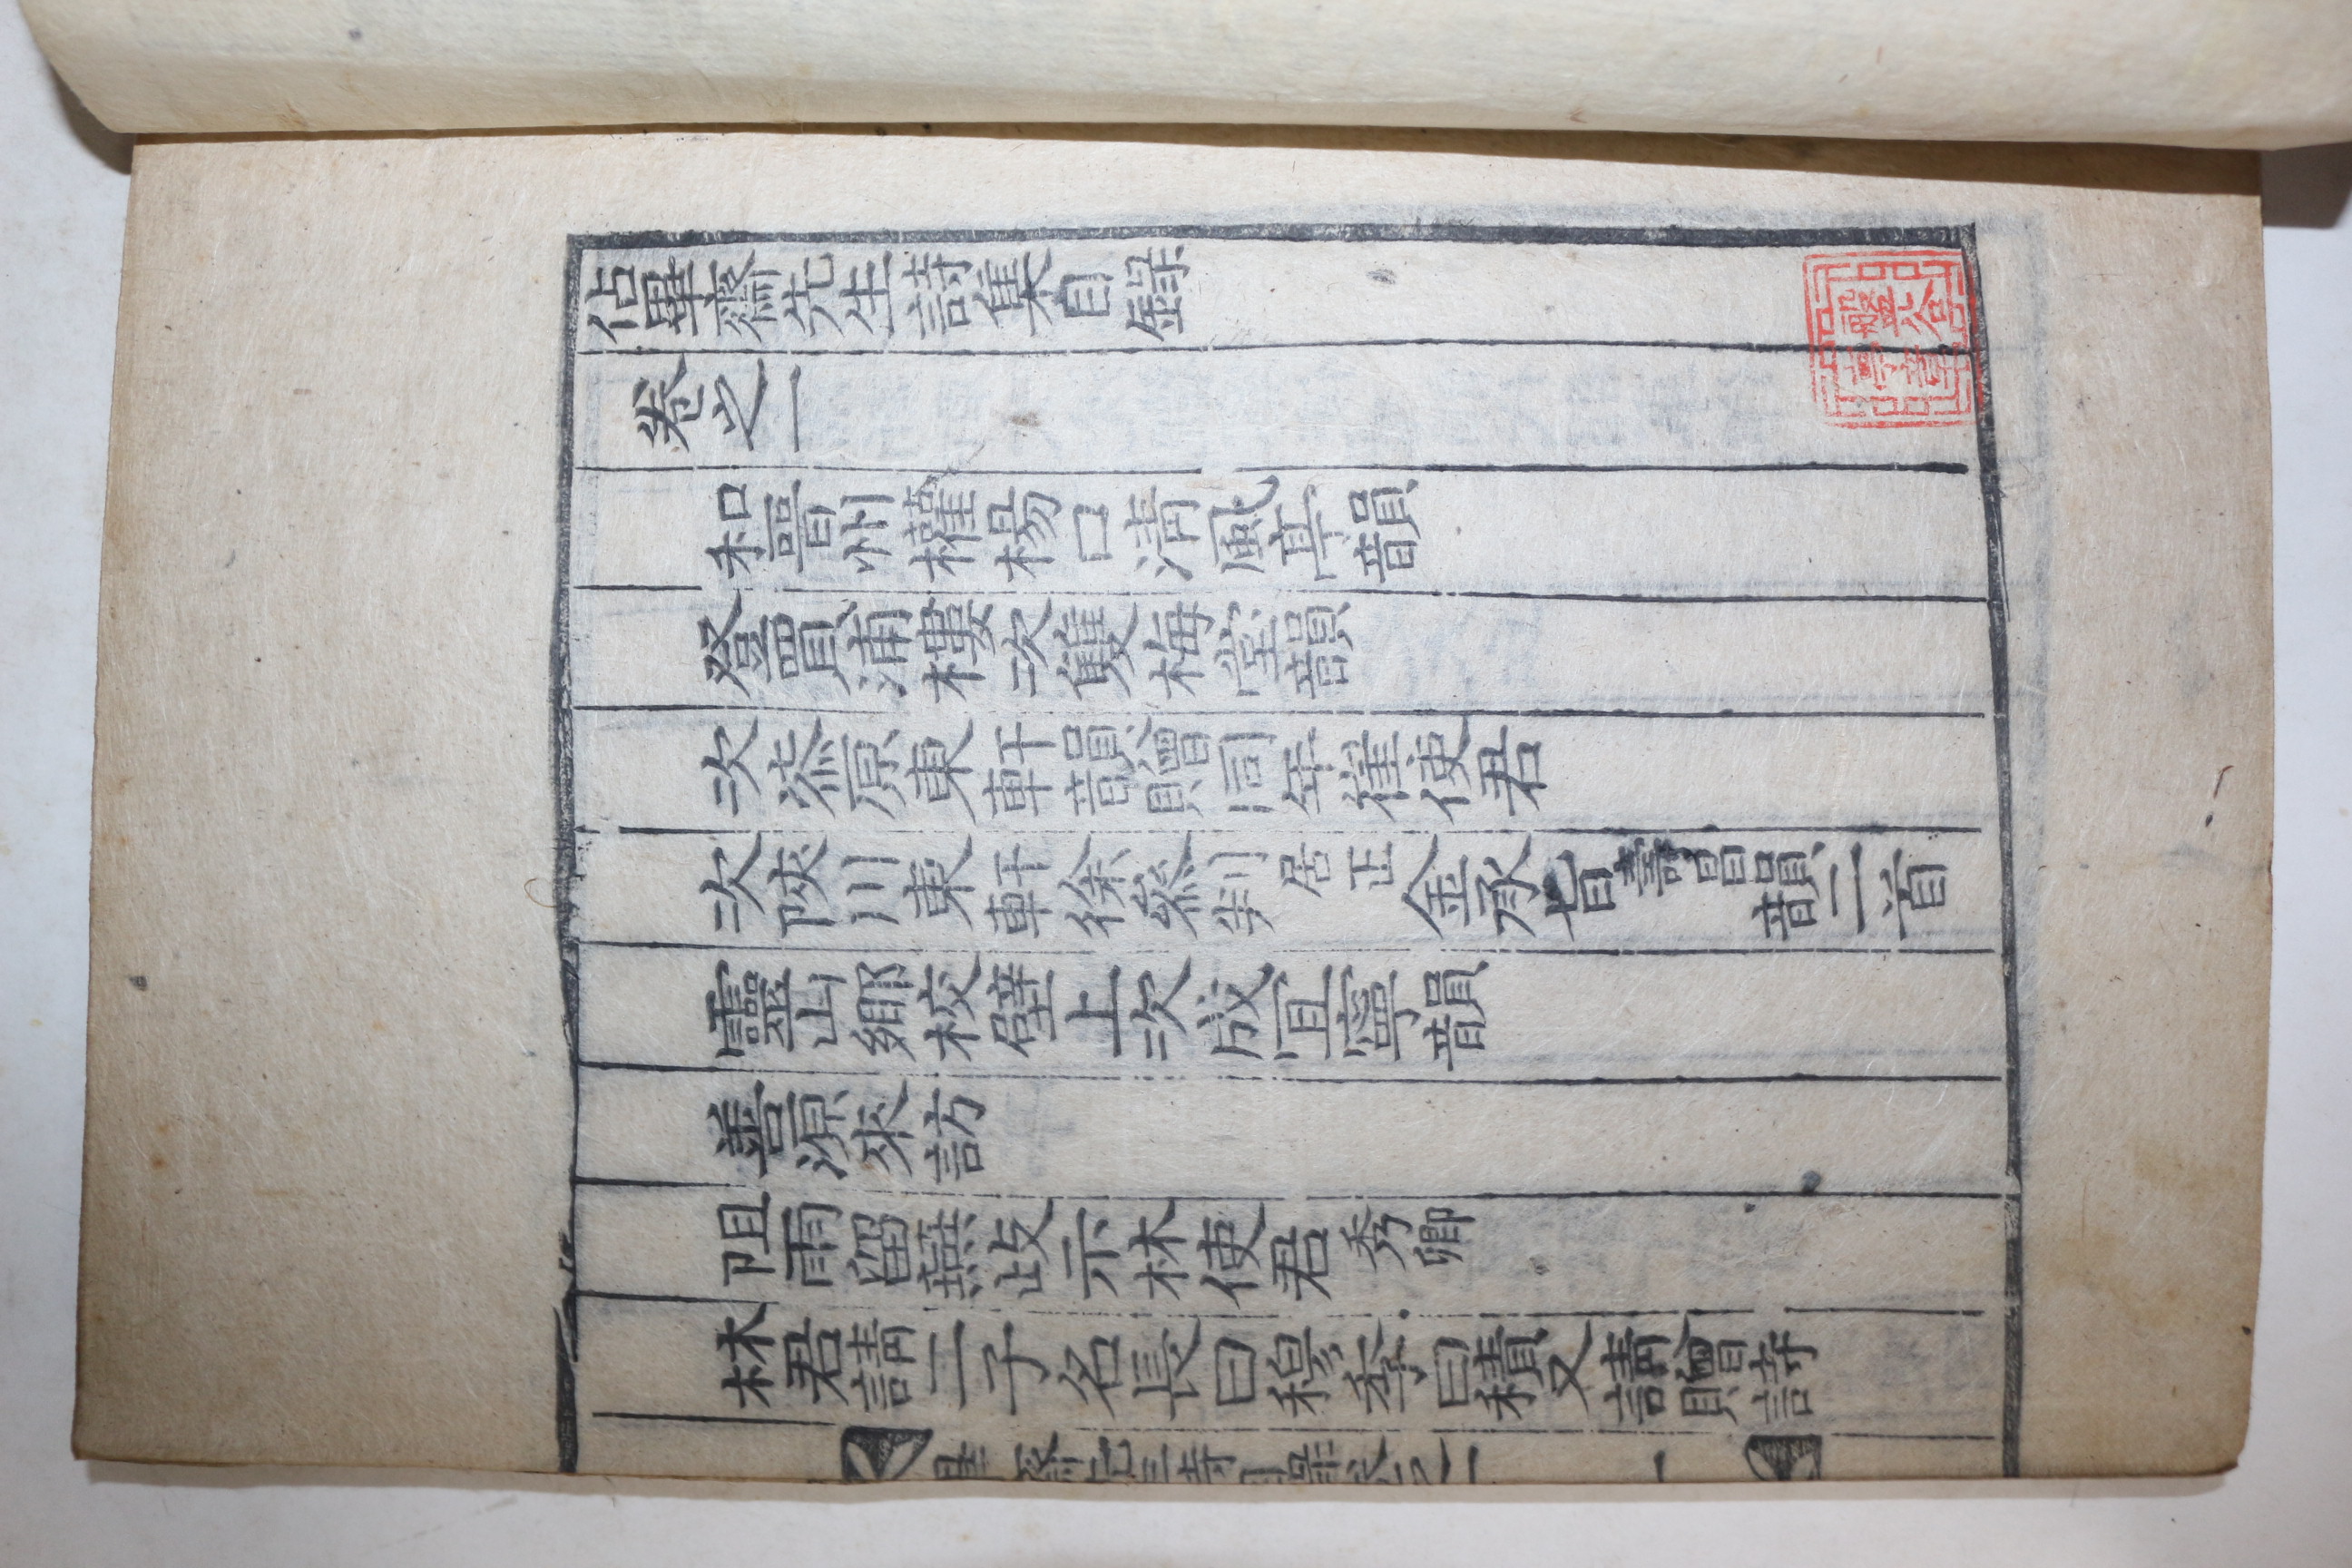 佔畢齋先生詩集目錄
卷之一
和晉州權楊口淸風亭韻
登買浦樓次雙梅堂韻
次柒原東軒韻贈同年崔使君
次陜川東軒徐叅判居正金承旨壽昌韻二首
靈山鄕校壁上次成冝寧韻
善源來訪
阻雨留蕪歧示林使君秀卿
林君請二子名長曰穆季曰積又請贈詩
一
盤谷
亭章